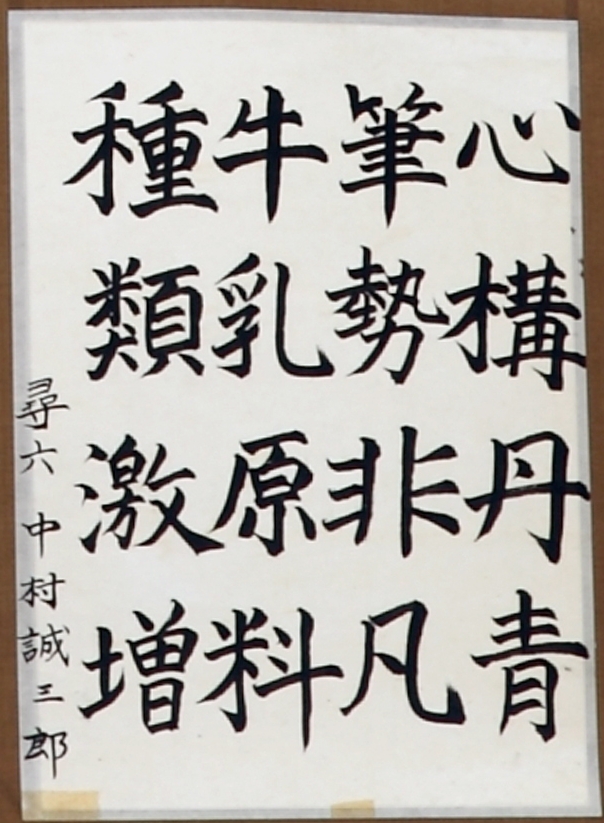 心構丹青
筆勢非凡
牛乳原料
種類激増
尋六 中村誠三郎